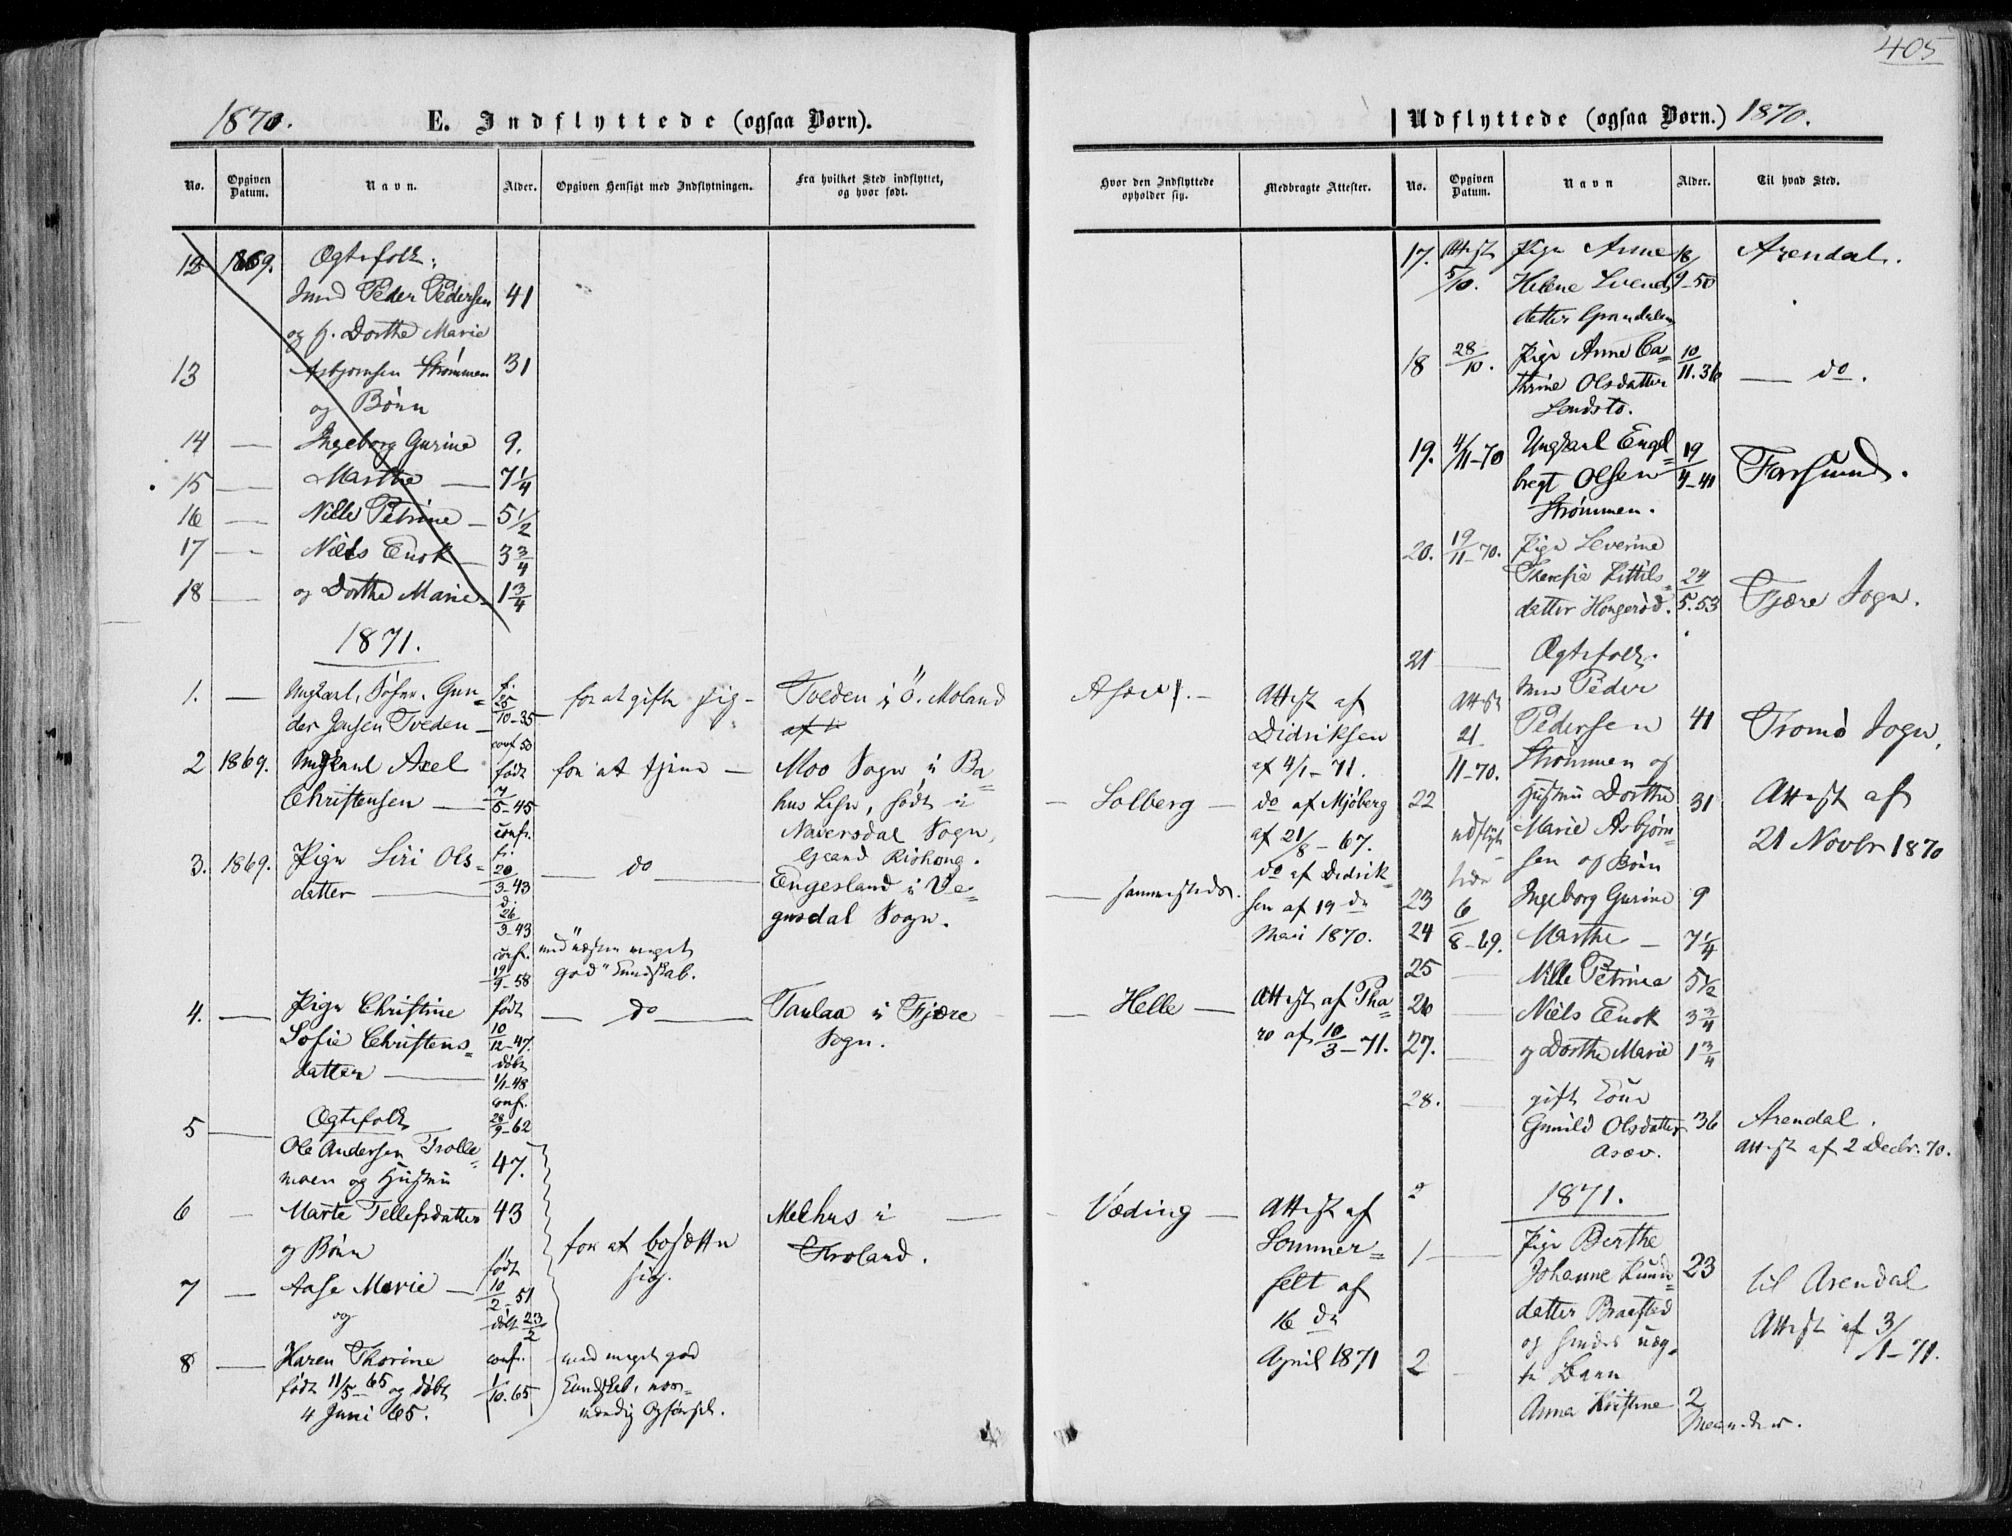 405
1870.
E. Indflyttede (ogsaa Børn).
No.
Opgiven Datum.
Navn.
Alder.
Opgiven Hensigt med Indflytningen.
Fra hvilket Sted indflyttet, og hvor født.
12 1869. Ægtefolk:
Peder Pedersen 41
og h. Dorthe Marie
13 Asbjørnsen Strømmen 31
og Børn
14 — Ingeborg Gurine 9.
15 — Marthe — 7 1/4
16 — Nille Petrine — 5 1/2
17 — Niels Enok — 3 3/4
18 — og Dorthe Marie 1 3/4
1871.
1. — Ungkarl, Gun=
der Jensen Tveden —
f. 25/10-35
conf 50
for at gifte sig —
Tveden i Ö. Moland
2 1869. Ungkarl Axel
Christensen —
født
7/5-45
conf.
for at tjene —
Moo Sogn i Ba=
hus Lehn, født i
Naversdal Sogn,
3. 1869. Pige Siri Ols=
datter —
f.
20/3-43
d.
26/3-43
conf.
19/9-58
— do —
Engesland i Ve=
gusdal Sogn.
med "næsten meget
god" Kundskab.
4. — Pige Christine
Sofie Christens=
datter —
født
10/12-47.
døbt
1/1-48
conf.
28/9-62
— do —
Taulaa i Fjære
Sogn.
5 — Ægtefolk
Ole Andersen Trolle=
moen og Hustru
47.
6 — Marte Tellefsdatter 43
og Børn
for at bosætte
sig.
Melhus i —
Froland.
7 — Aase Marie —
og
født
10/2-51
døbt 23/2
8 — Karen Thorine
født 11/5-65 og døbt
4 Juni 65.
conf.
1/10.65
med meget god
Kundskab,
Opførsel.
Udflyttede (ogsaa Børn.) 1870.
Hvor den Indflyttede opholder sig.
Medbragte Attester.
No.
Opgiven Datum.
Navn
Alder.
Til hvad Sted.
Asæv. —
Attest af
Didriksen
af 4/1-71.
— Solberg —
do af Mjöberg
af 21/8-67.
— sammesteds.
do af Didrik=
sen af 19 de
Mai 1870.
— Helle —
Attest af Tha=
ro af 10/3-71.
— Væding —
Attest af
Sommer=
felt af
16 de
April 1871
17. Attest 5/10. Pige Anne
Helene Svends
datter Grøndalen
18/9-50
Arendal.
18 28/10. Pige Anne Ca=
thrine Olsdatter
Sandstø.
10/11.36
— do.
19. 4/11-70 Ungkarl Engel=
bregt Olsen
Strømmen.
19/4-41
Farsund.
20. 19/11-70. Pige Severine
Theresia Kittils=
datter Hongerød.
24/5.53
Fjære Sogn.
21 — Ægtefolk.
Peder
Attest
21/11-70.
Pedersen 41
Strømmen og
Tromø Sogn,
22 Hustru Dorthe 31
Marie Asbjørn=
sen og Børn
Attest af
21 Novbr 1870
udflyt
siden
6/8-69.
23 Ingeborg Gurine 9
24 Marthe — 7 1/4
25 — Nille Petrine 5 1/2
26 — Niels Enok 3 3/4
27. — og Dorthe Marie 1 3/4
28. — gift Kone
Gunild Olsdatter 36
Asæv.
Arendal.
Attest af 2 Decbr. 70.
1871.
1 — Pige Berthe
Johanne Knuds=
datter Braasted
23
til Arendal
Attest af 3/1-71.
og hendes uæg=
2 — te Barn
Anna Kristine 2
Maaneder.